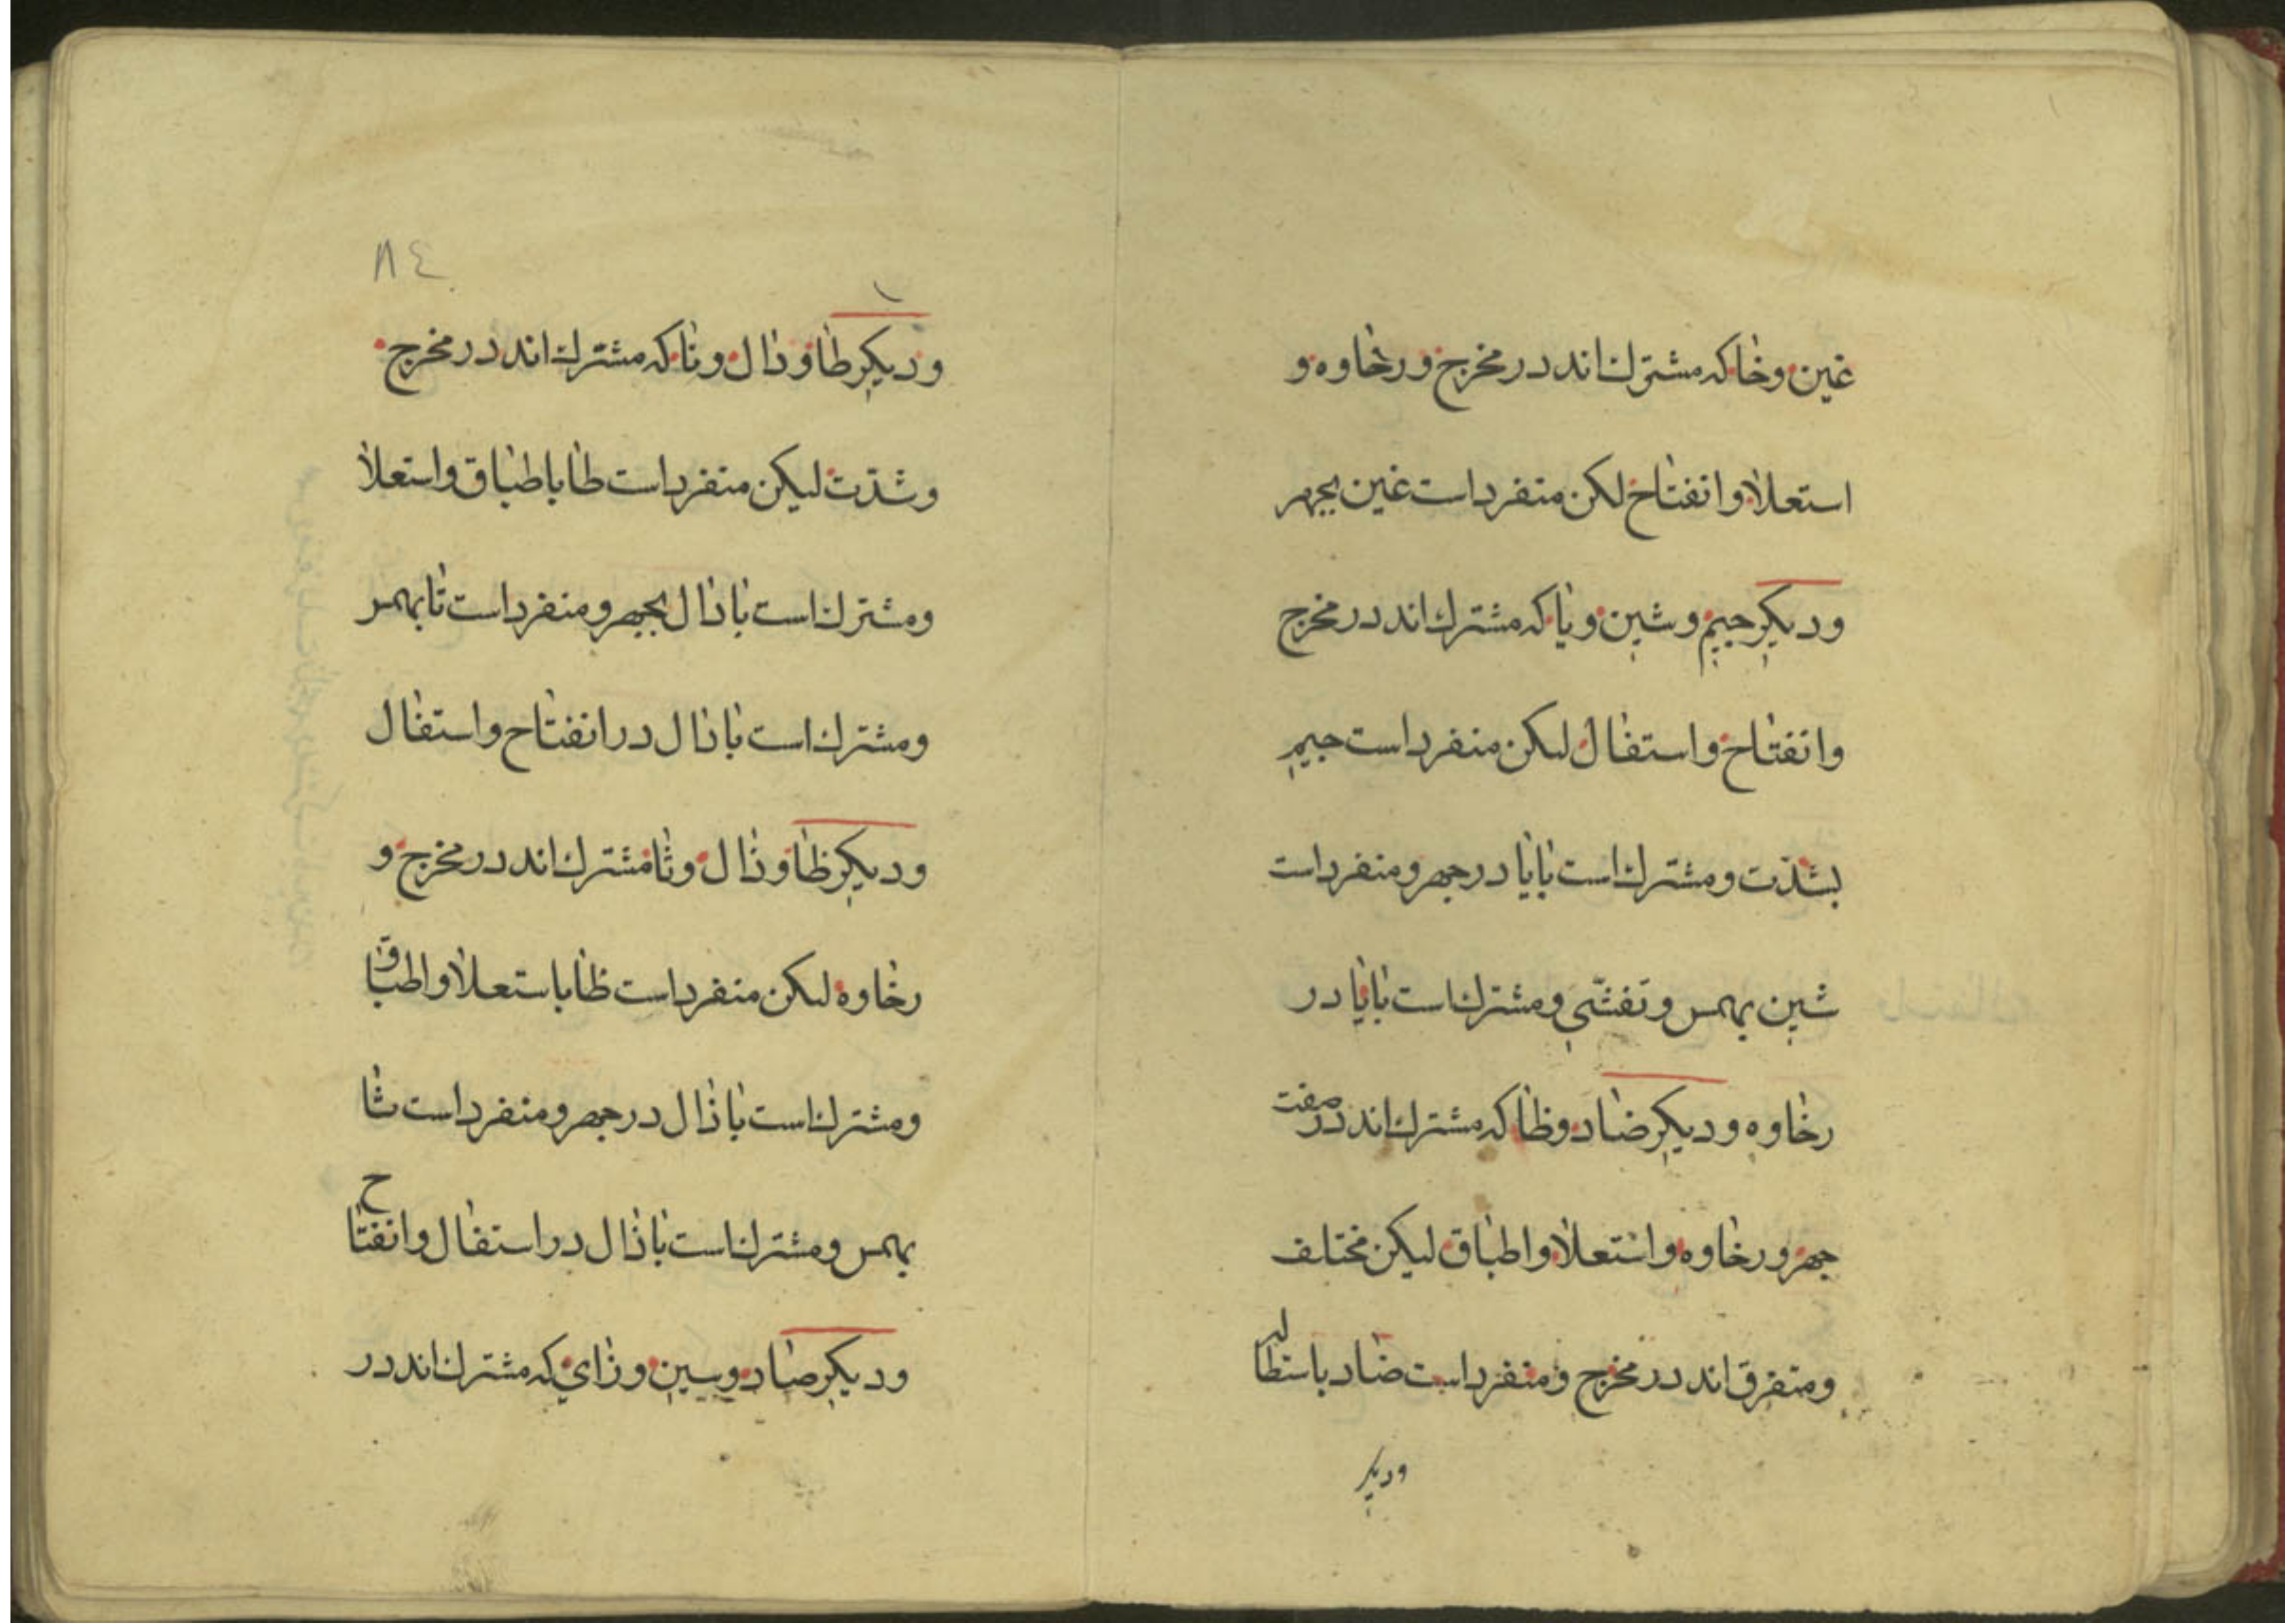 غين وخا كه مشترك اند در مخرج و رخاوه و
استعلا و انفتاح لكن منفرد است غين بجهر
و ديكر جيم و شين و يا كه مشترك اند در مخرج
و انفتاح و استفال لكن منفرد است جيم
بشدّت و مشترك است با يا در جهر و منفرد است
شين بهمس و تفشّي و مشترك است با يا در
رخاوه و ديكر ضاد و ظا كه مشترك اند در صفت
جهر و رخاوه و استعلا و اطباق ليكن مختلف
و متفرق اند در مخرج و منفرد است ضاد باستطاله
و ديكر
٨٤
و ديكر طا و دال و تا كه مشترك اند در مخرج
و شدّت ليكن منفرد است طا باطباق و استعلا
و مشترك است با دال بجهر و منفرد است تا بهمس
و مشترك است با دال در انفتاح و استفال
و ديكر ظا و ذال و ثا مشترك اند در مخرج و
رخاوه لكن منفرد است ظا باستعلا و اطباق
و مشترك است با ذال در جهر و منفرد است ثا
بهمس و مشترك است با ذال در استفال و انفتاح
و ديكر صاد و سين و زاي كه مشترك اند در